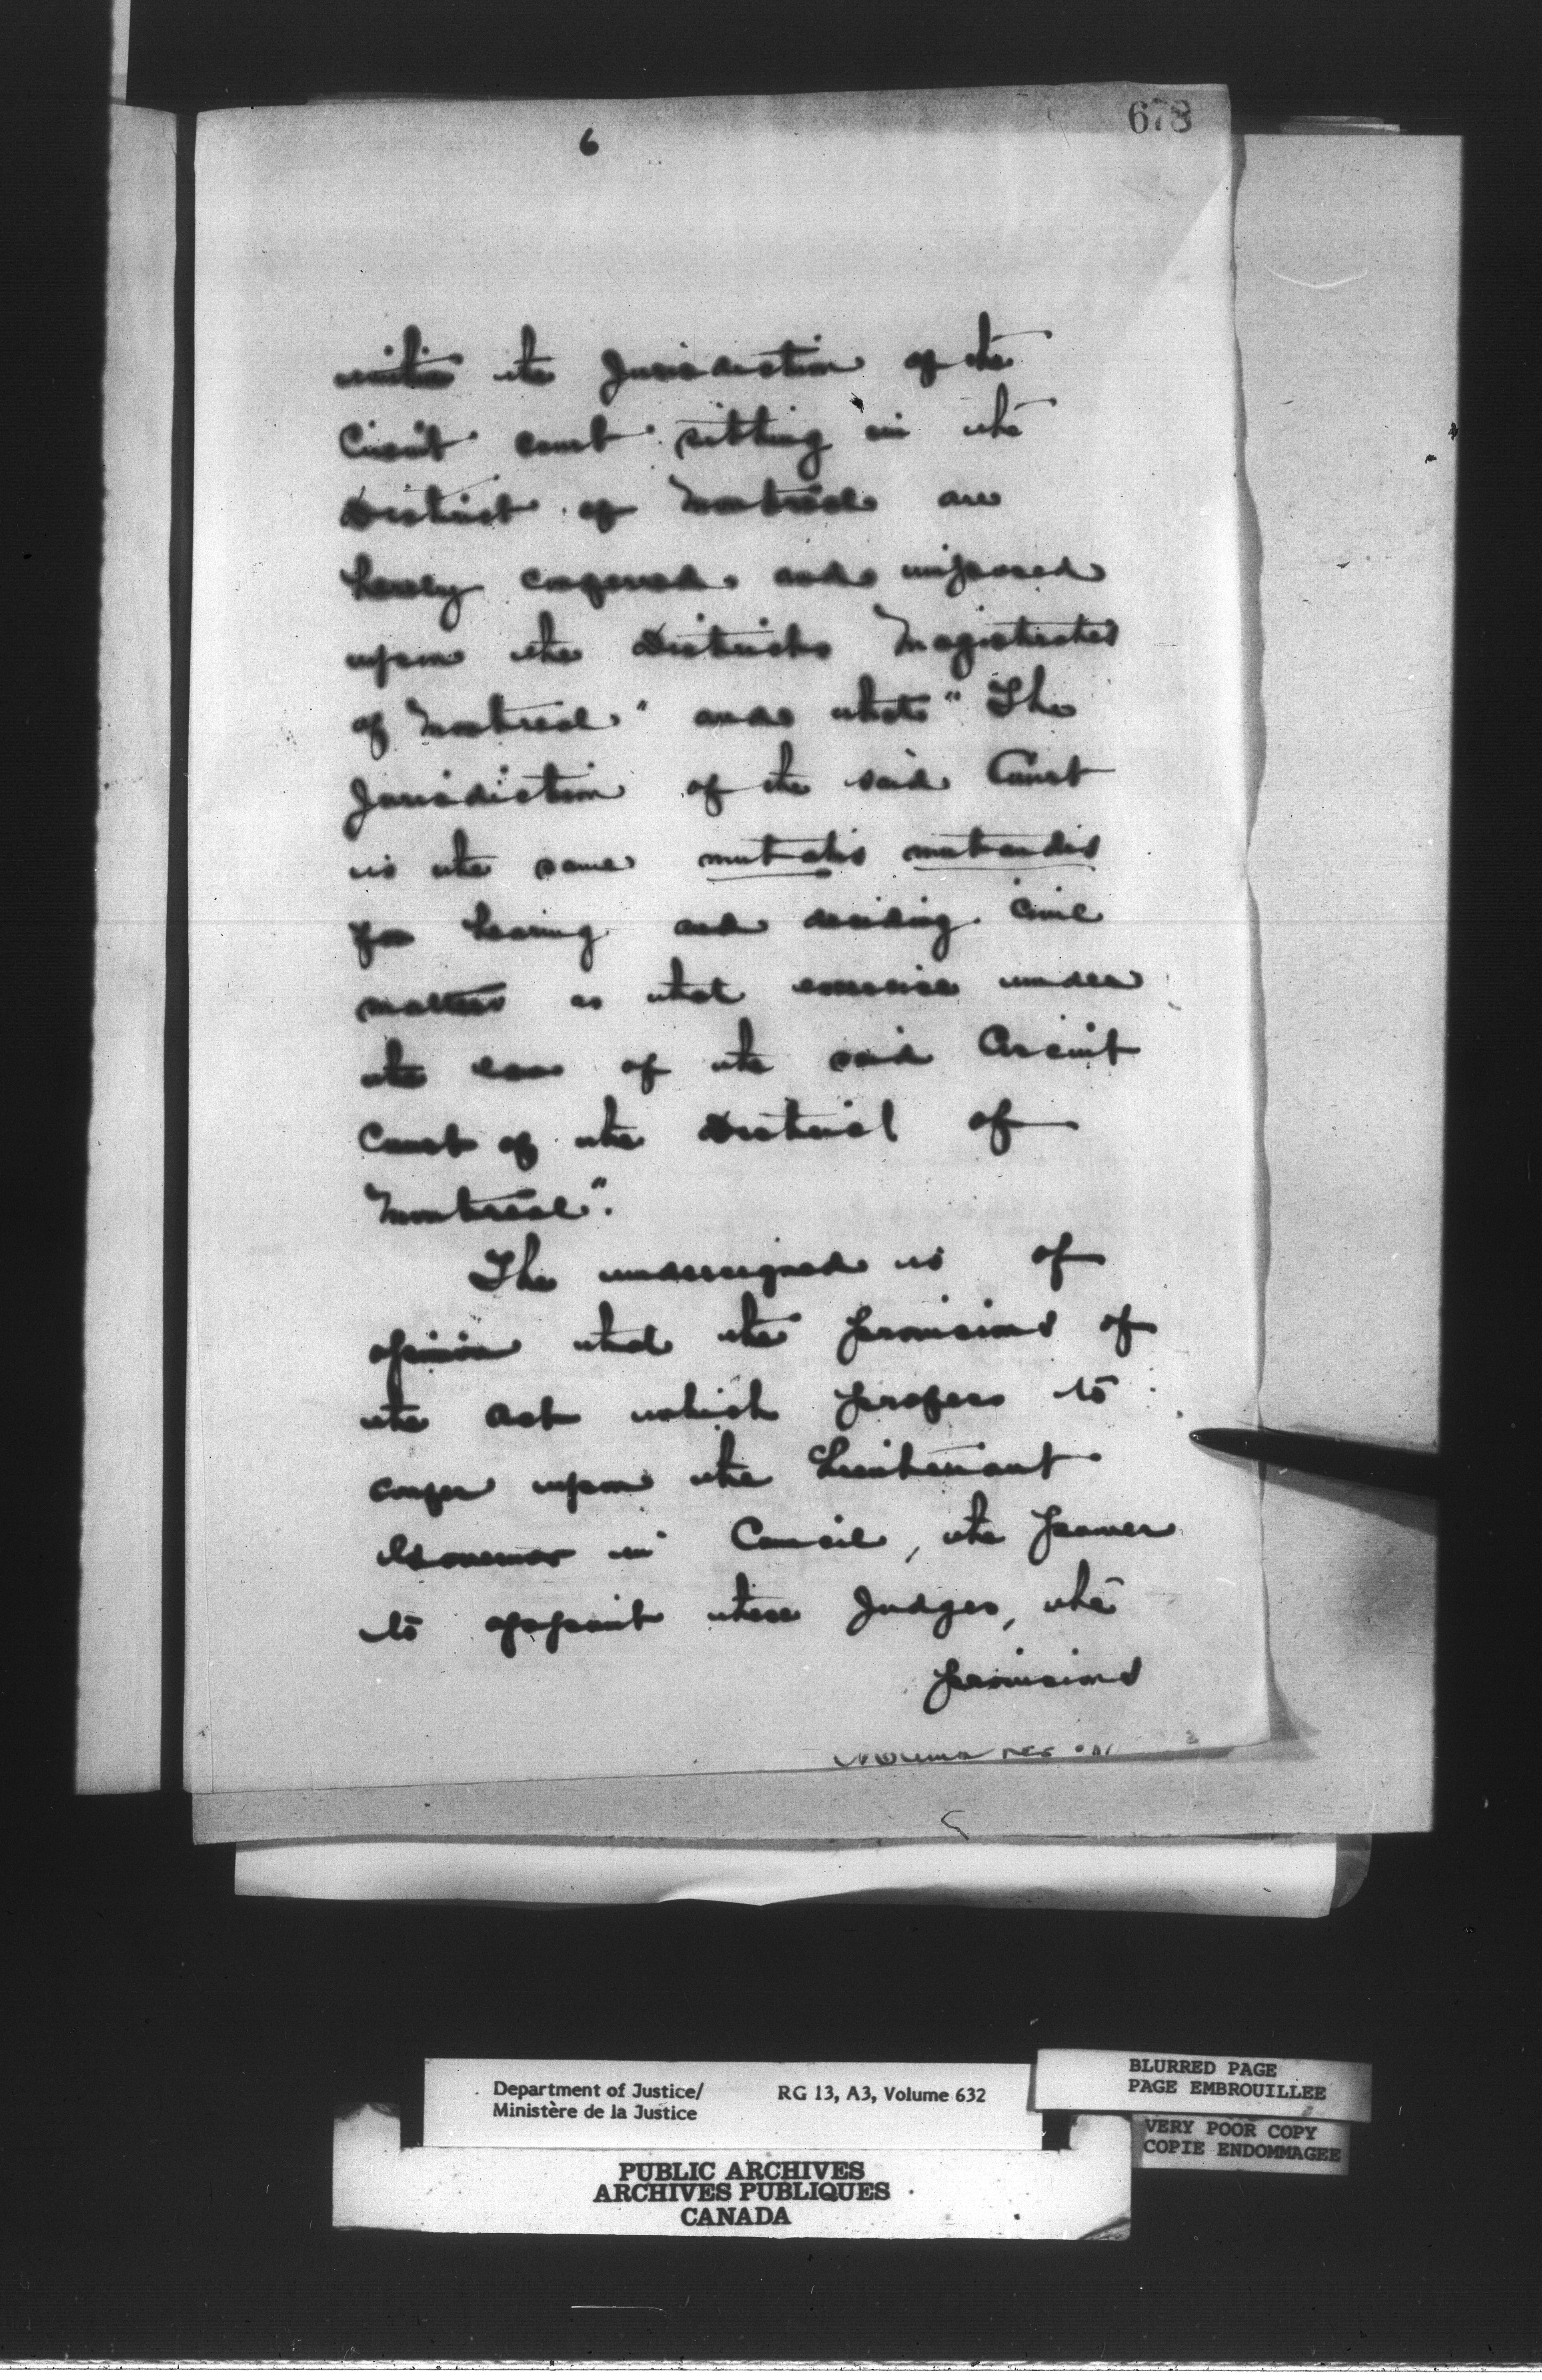 678
6
within the Jurisdiction of the
Circuit Court sitting in the
District of Montreal are
hereby conferred and imposed
upon the Districts Magistrates
of Montreal" and that "The
Jurisdiction of the said Court
is the same mutatis mutandis
for hearing and deciding civil
matters as that exercise under
the law of the said Circuit
Court of the District of
Montreal".
The undersigned is of
opinion that the provisions of
the Act which profess to
confer upon the Lieutenant
Governor in Council, the power
to appoint these Judges, the
provisions
Department of Justice/
Ministère de la Justice
RG 13, A3, Volume 632
BLURRED PAGE
PAGE EMBROUILLEE
VERY POOR COPY
COPIE ENDOMMAGEE
PUBLIC ARCHIVES
ARCHIVES PUBLIQUES
CANADA